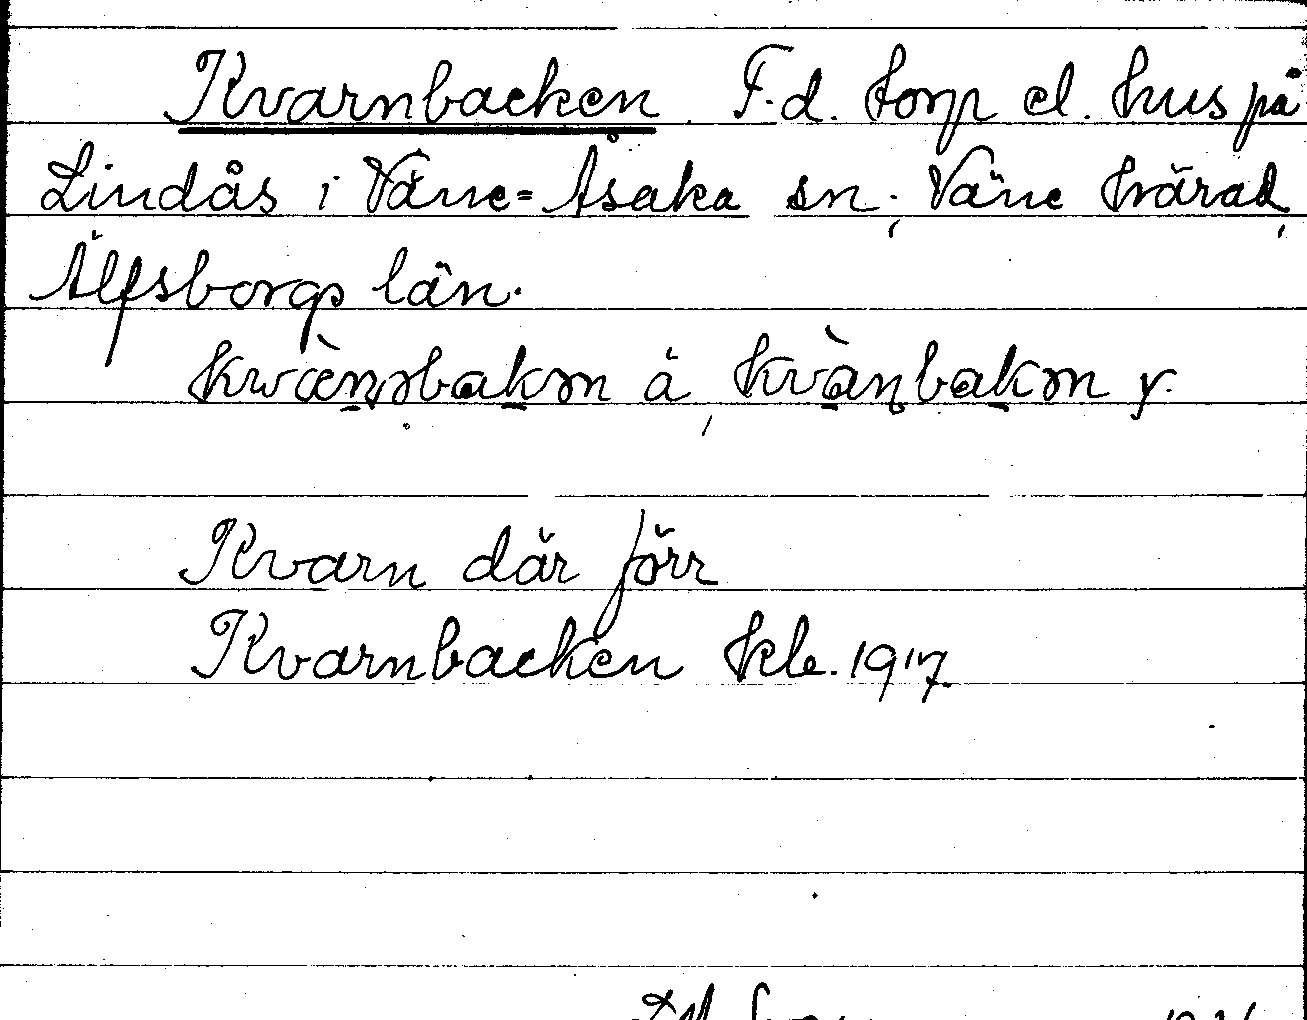 Kvarnbacken. F.d. torp el. hus på
Lindås i Väne=Åsaka sn., Väne härad,
Älfsborgs län.
å y.
Kvarn där förr
Kvarnbacken kb. 1917